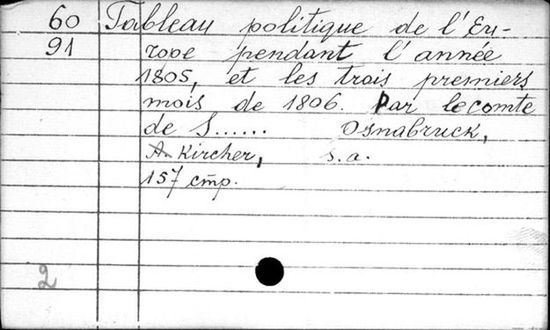 60 Tableau politique de l'Eu-
91 rope pendant l'année
1805, et les trois premiers
mois de 1806. Par le comte
de S...... Osnabruck,
A. Kircher, s.a.
157 стр.
2